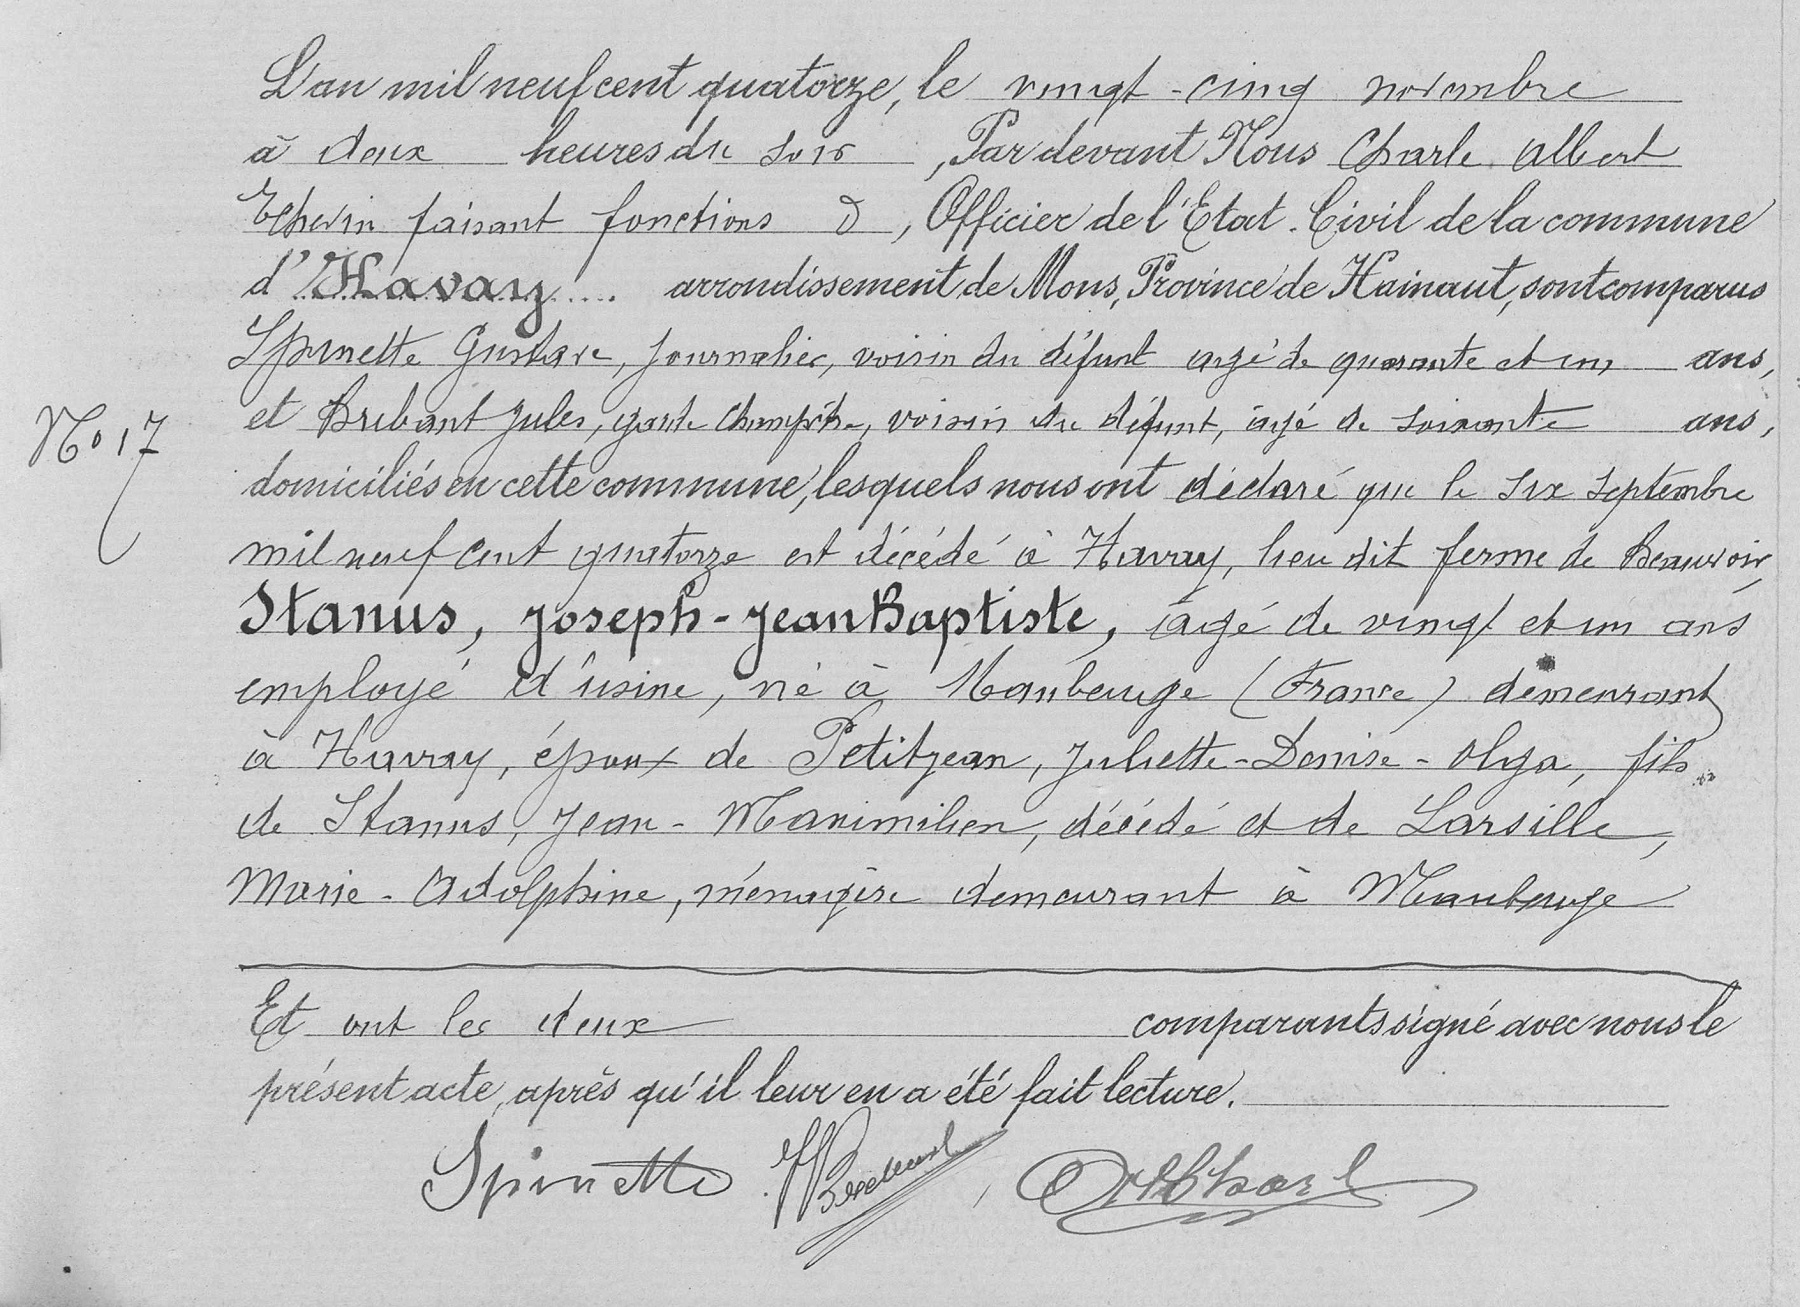 L'an mil neuf cent quatorze, le vingt-cinq novembre
à deux heures du soir, Par devant Nous Charle Albert
Echevin faisant fonctions d', Officier de l'Etat-Civil de la commune
d'Havay arrondissement de Mons, Province de Hainaut, sont comparus
Spinette Gustave, journalier, voisin du défunt agé de quarante et un ans,
et Brebant Jules, garde champêtre, voisin du défunt, agé de soixante ans,
No 17
domiciliés en cette commune, lesquels nous ont déclaré que le six septembre
mil neuf cent quatorze est décédé à Havay, lieu dit ferme de Beauvoir,
Stanus, Joseph-Jean Baptiste, âgé de vingt et un ans
employé d'usine, né à Maubeuge (France) demeurant
à Havay, époux de Petitjean, Juliette-Denise-Olga, fils
de Stanus, Jean-Maximilien, décédé et de Larsille,
Marie-Adolphine, ménagère demeurant à Maubeuge
Et ont les deux comparants signé avec nous le
présent acte, après qu'il leur en a été fait lecture.
Spinette J Brebant A Charle